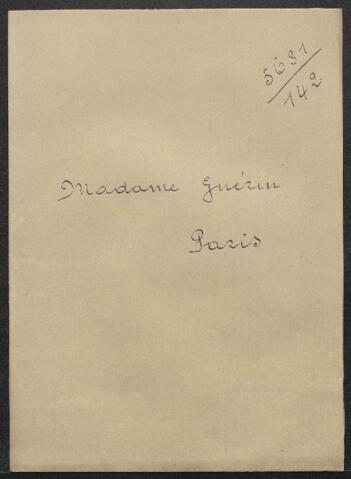 5691
142
Madame Guérin
Paris